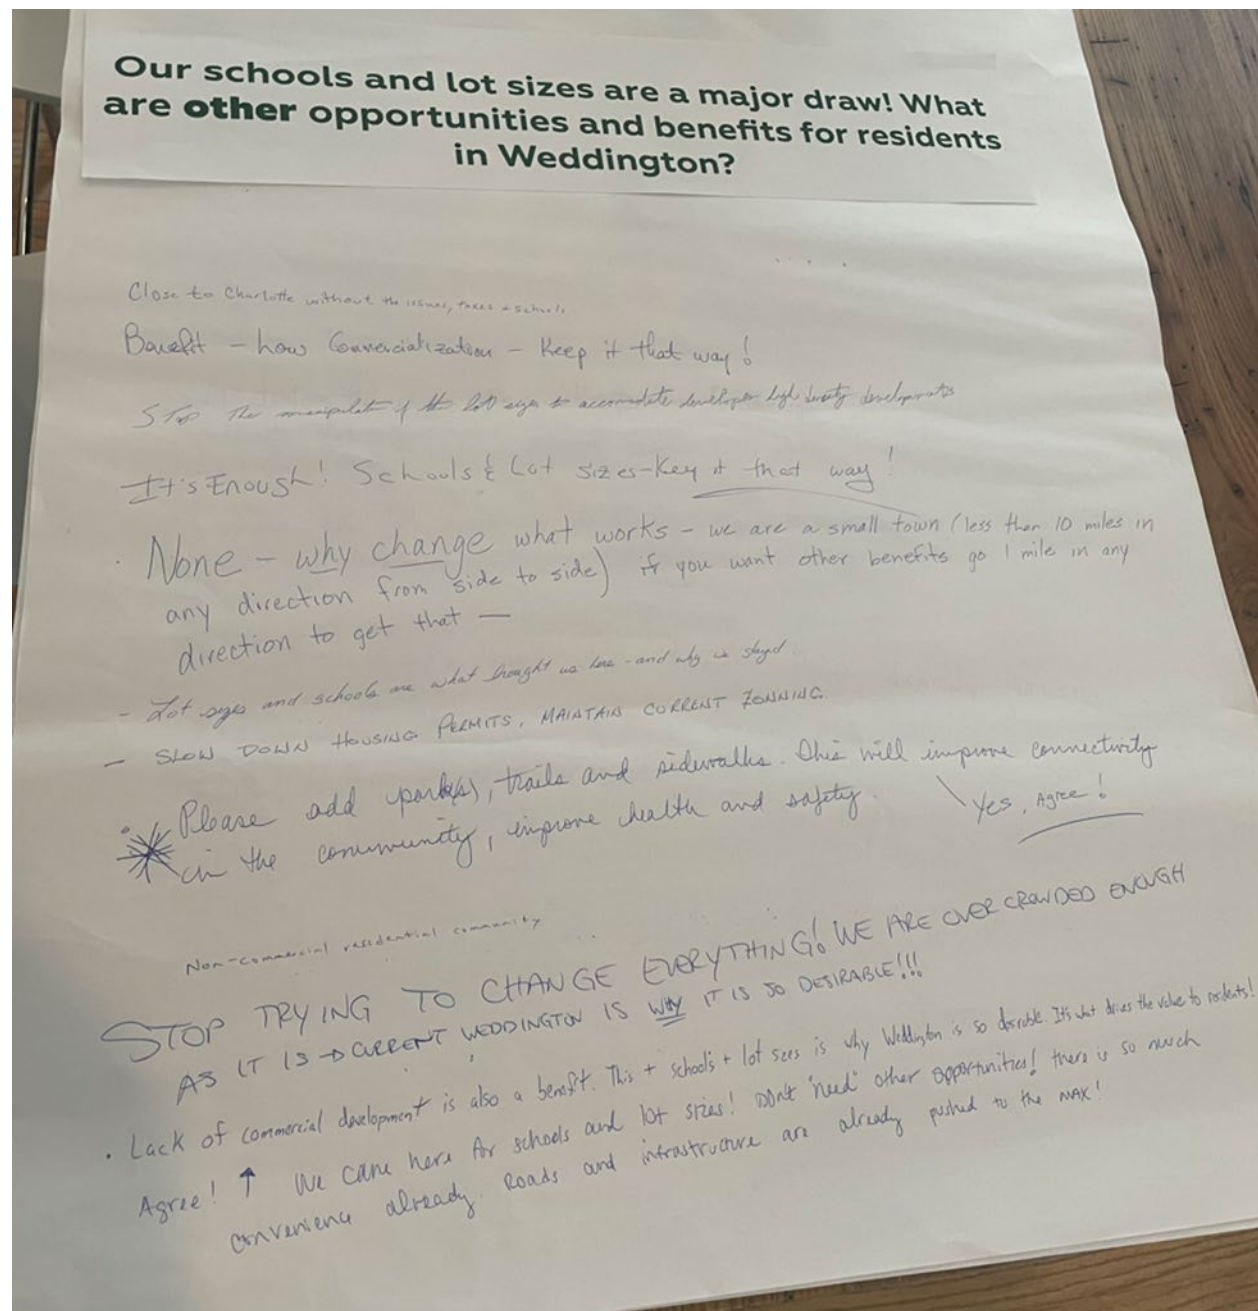 Our schools and lot sizes are a major draw! What
are other opportunities and benefits for residents
in Weddington?
Close to Charlotte without the issues, taxes + schools
Benefit – Low Commercialization – Keep it that way!
STOP The manipulation of the lot sizes to accomodate developer high density developments
It's Enough! Schools & Lot sizes–Keep it that way!
None – why change what works – we are a small town (less than 10 miles in
any direction from side to side) if you want other benefits go 1 mile in any
direction to get that —
– Lot sizes and schools are what brought us here – and why we stayed.
– SLOW DOWN HOUSING PERMITS, MAINTAIN CURRENT ZONNING.
Please add park(s), trails and sidewalks. This will improve connectivity
in the community, improve health and safety.
Yes, Agree!
Non-commercial residential community
STOP TRYING TO CHANGE EVERYTHING! WE ARE OVER CROWDED ENOUGH
AS IT IS → CURRENT WEDDINGTON IS WHY IT IS SO DESIRABLE!!!
• Lack of commercial development is also a benefit. This + schools + lot sizes is why Weddington is so desirable. It's what drives the value to residents!
Agree! ↑ We came here for schools and lot sizes! Don't "need" other opportunities! there is so much
convenience already. Roads and infrastructure are already pushed to the MAX!